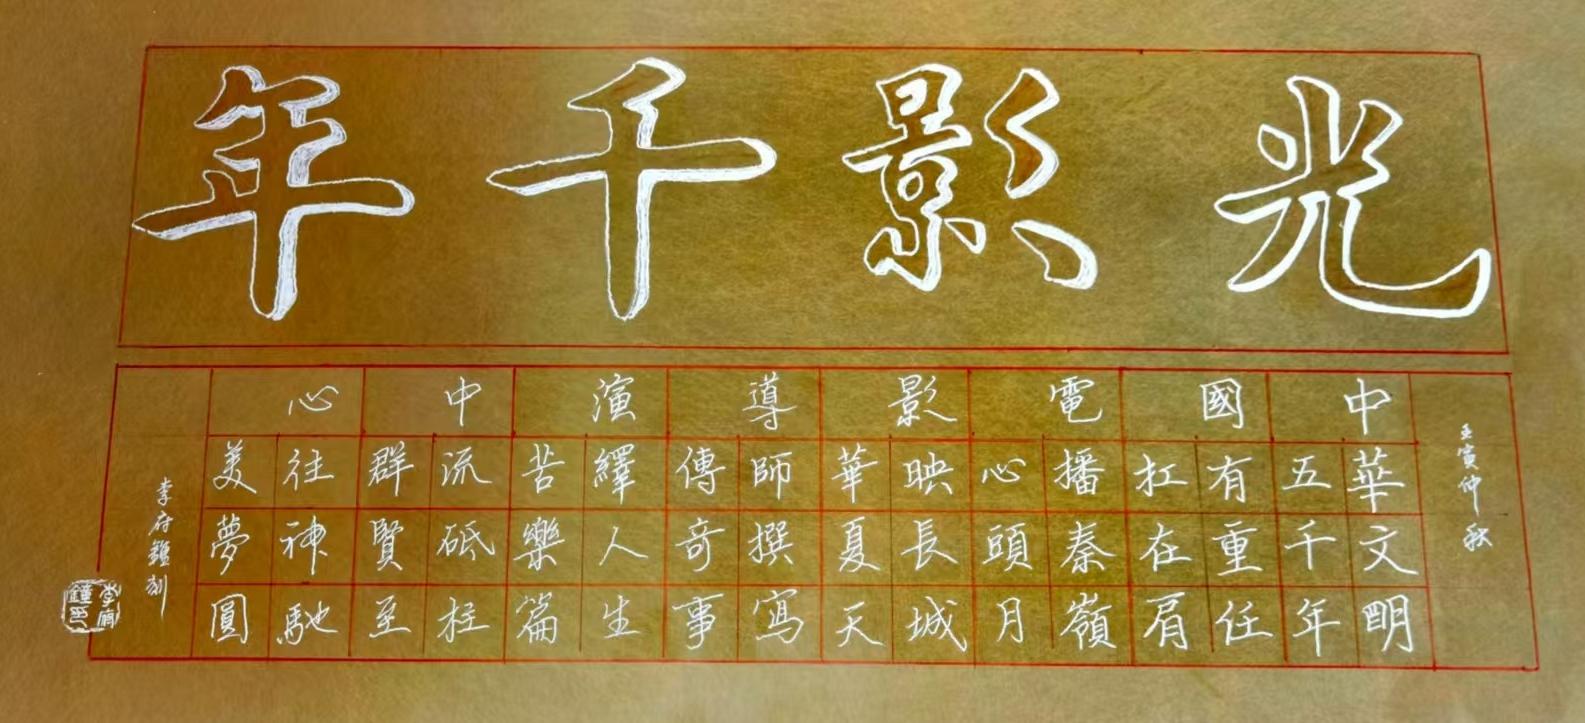 光影千年
壬寅仲秋
中華文明
五千年
國有重任
扛在肩
電播秦嶺
心頭月
影映長城
華夏天
導師撰寫
傳奇事
演繹人生
苦樂篇
中流砥柱
群賢至
心往神馳
美夢圓
李府刻
李府鐘印